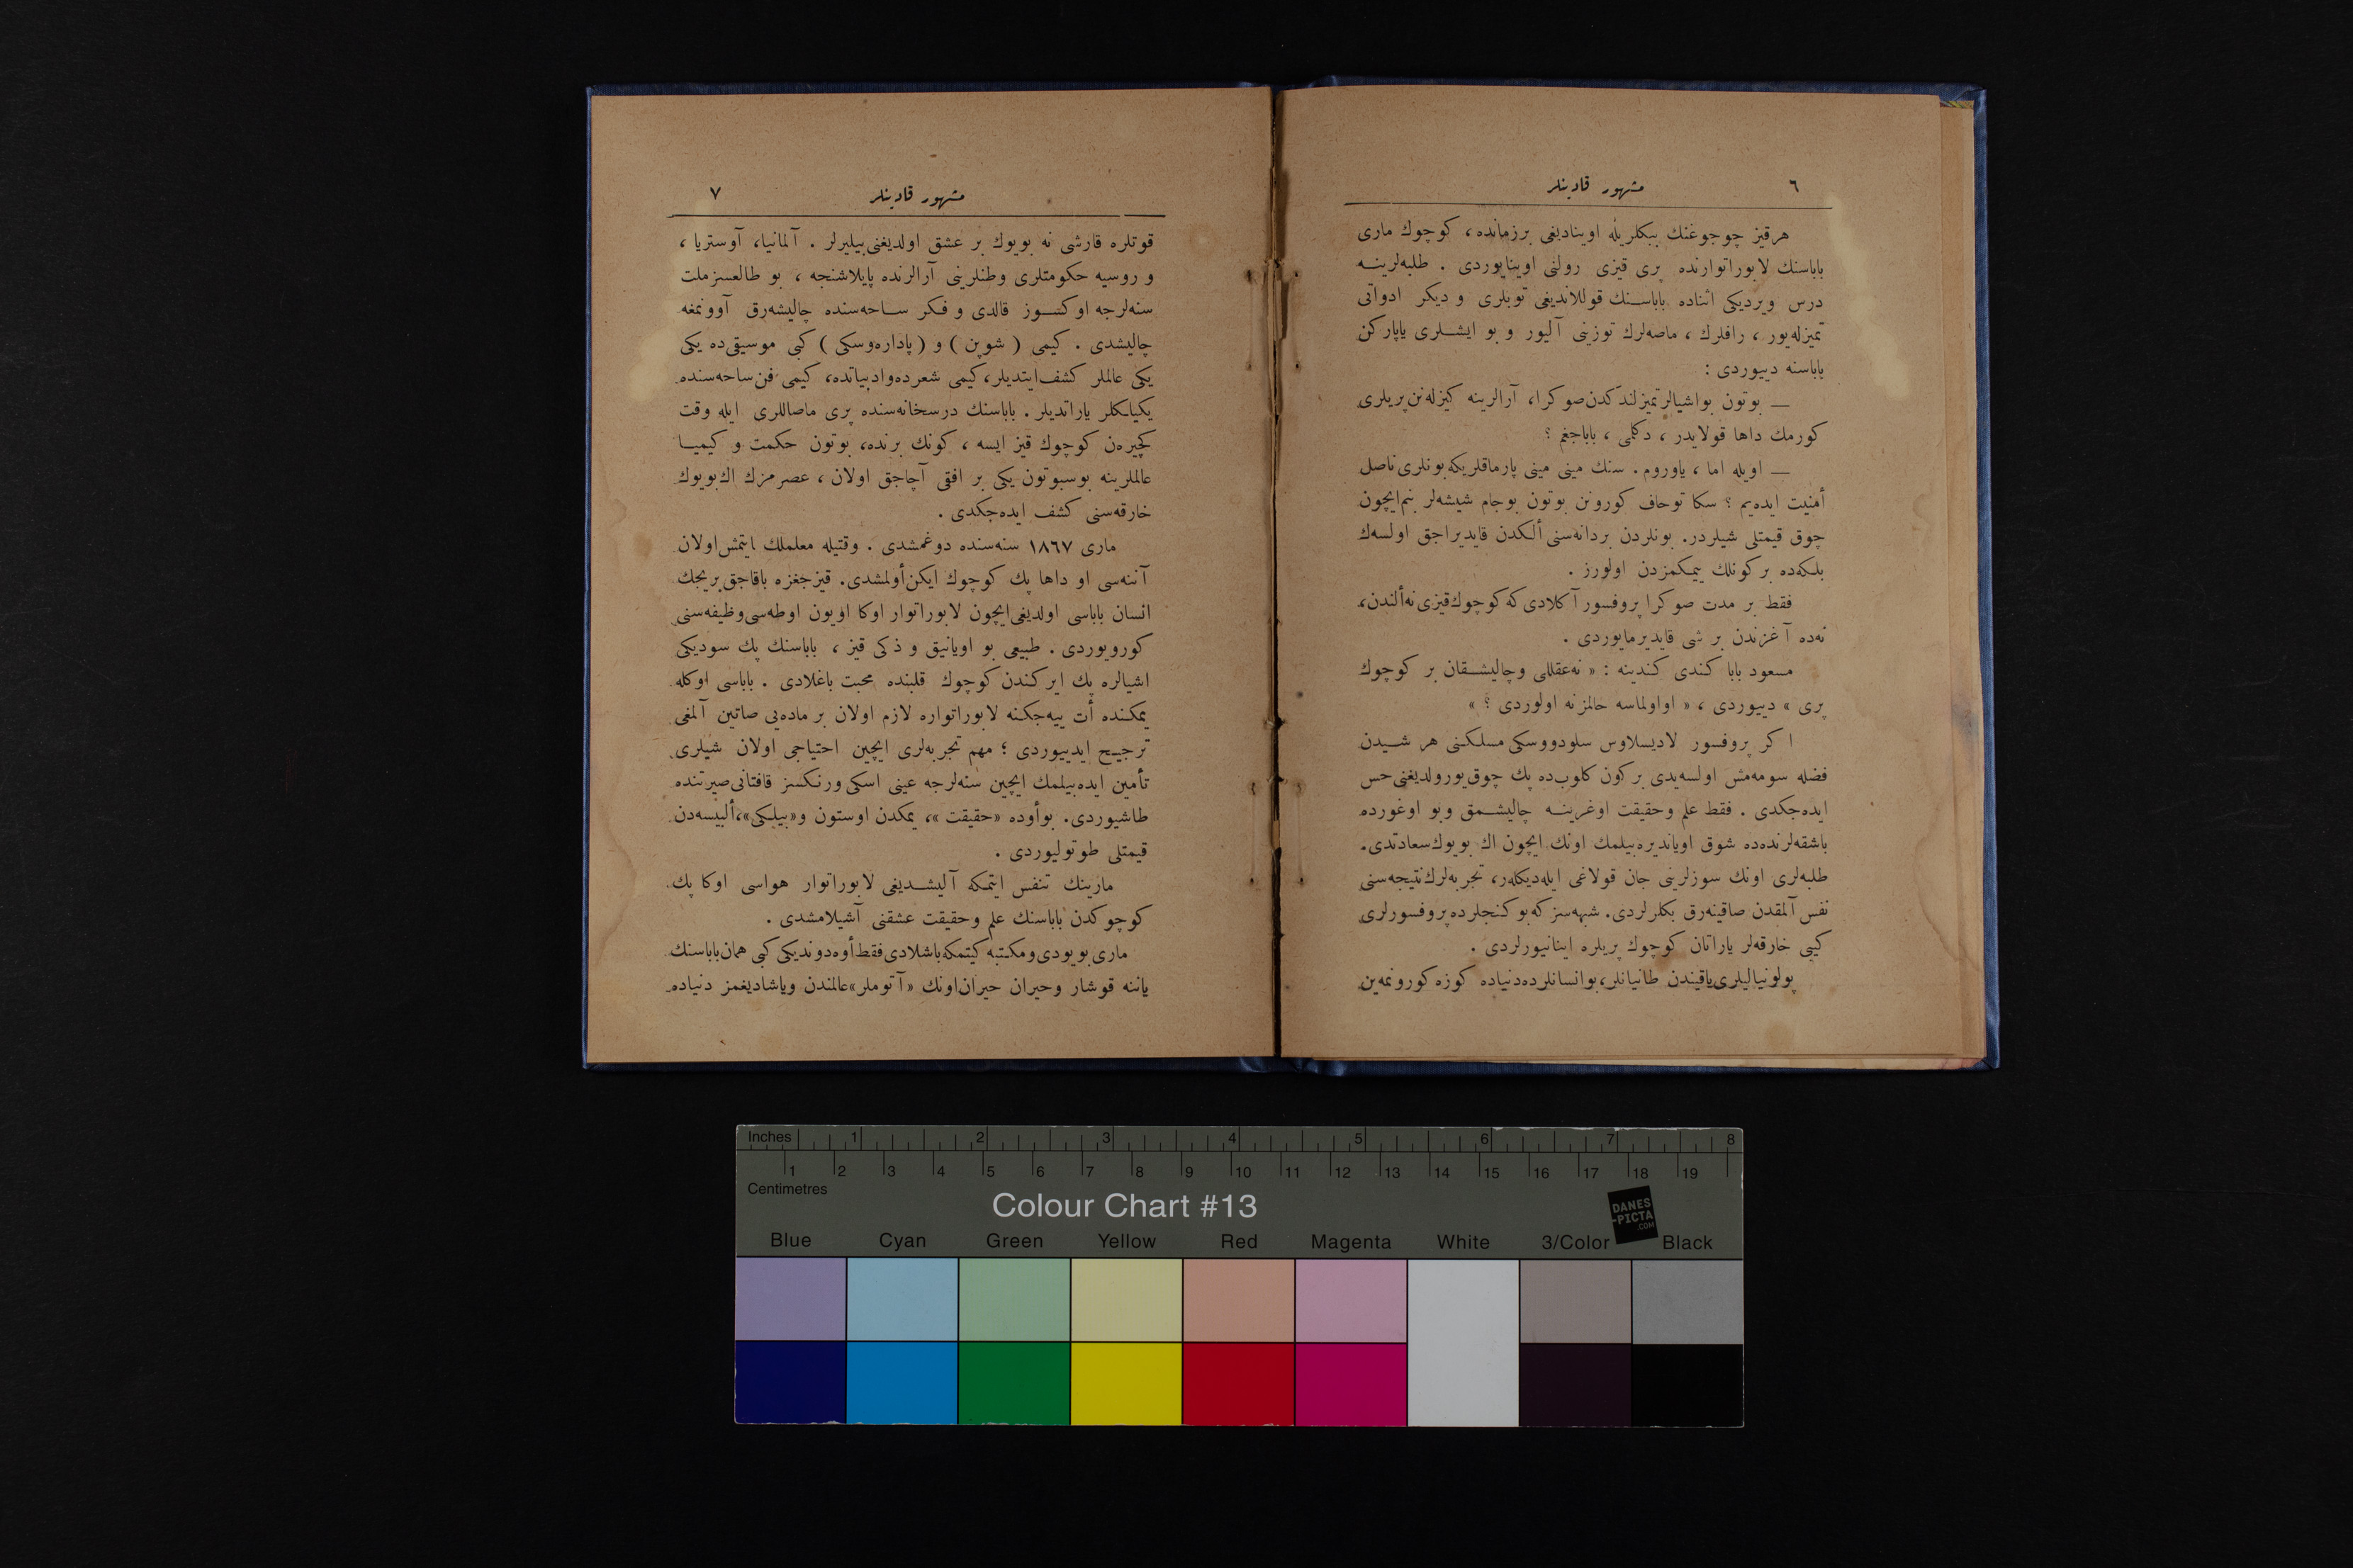 ٦
مشهور قادینلر
هرقیز چوجوغنك ببكلریله اوینادیغی برزمانده، كوچوك ماری
باباسنك لابوراتوارنده پری قیزی رولنی اوینایوردی . طلبه‌لرینه
درس ویردیكی اثناده باباسنك قوللاندیغی توبلری و دیكر ادواتی
تمیزله‌یور ، رافلرك ، ماصه‌لرك توزینی آلیور و بو ایشلری یاپاركن
باباسنه دییوردی :
— بوتون بواشیالر تمیزلندكدن صوكرا، آرالرینه كیزله‌نن پریلری
كورمك داها قولایدر ، دكلمی ، باباجغم ؟
— اویله اما ، یاوروم . سنك مینی مینی پارماقلریكه بونلری ناصل
أمنیت ایده‌یم ؟ سكا توحاف كورونن بوتون بوجام شیشه‌لر بنم‌ایچون
چوق قیمتلی شیلردر. بونلردن بردانه‌سنی ألكدن قایدیراجق اولسه‌ك
بلكه‌ده بر كونلك ییمكمزدن اولورز .
فقط بر مدت صوكرا پروفسور آكلادی كه كوچوك قیزی نه‌ألندن،
نه‌ده آغزندن بر شی قایدیرمایوردی .
مسعود بابا كندی كندینه : « نه‌عقللی وچالیشقان بر كوچوك
پری » دییوردی ، « اواولماسه حالمز نه اولوردی ؟ »
اكر پروفسور لادیسلاوس سلودووسكی مسلكنی هر شیدن
فضله سومه‌مش اولسه‌یدی بر كون كلوب‌ده پك چوق یورولدیغنی حس
ایده‌جكدی . فقط علم وحقیقت اوغرینه چالیشمق وبو اوغورده
باشقه‌لرنده‌ده شوق اویاندیره‌بیلمك اونك ایچون اك بویوك سعادتدی.
طلبه‌لری اونك سوزلرینی جان قولاغی ایله‌دیكلر، تجربه‌لرك نتیجه‌سنی
نفس آلمقدن صاقینه‌رق بكلرلردی. شبهه‌سز كه بوكنجلرده پروفسورلری
كیبی خارقه‌لر یاراتان كوچوك پریلره اینانیورلردی .
پولونیالیلری یاقیندن طانیانلر، بوانسانلرده‌دنیاده كوزه كورونمه‌ین
مشهور قادینلر
٧
قوتلره قارشی نه بویوك بر عشق اولدیغنی بیلیرلر . آلمانیا، آوستریا ،
و روسیه حكومتلری وطنلرینی آرالرنده پایلاشنجه ، بو طالعسز ملت
سنه‌لرجه اوكسوز قالدی و فكر ساحه‌سنده چالیشه‌رق آوونمغه
چالیشدی . كیمی ( شوپن ) و ( پاداره‌وسكی ) كبی موسیقی‌ده یكی
یكی عالملر كشف ایتدیلر، كیمی شعرده‌وادبیاتده، كیمی فن ساحه‌سنده
یكیلكلر یاراتدیلر . باباسنك درسخانه‌سنده پری ماصاللری ایله وقت
كچیره‌ن كوچوك قیز ایسه ، كونك برنده، بوتون حكمت و كیمیا
عالملرینه بوسبوتون یكی بر افقی آچاجق اولان ، عصرمزك اك بویوك
خارقه‌سنی كشف ایده‌جكدی .
ماری ١٨٦٧ سنه‌سنده دوغمشدی . وقتیله معلملك ایتمش اولان
آننه‌سی او داها پك كوچوك ایكن أولمشدی. قیزجغزه باقاجق بریجك
انسان باباسی اولدیغی ایچون لابوراتوار اوكا اویون اوطه‌سی وظیفه‌سنی
كورویوردی . طبیعی بو اویانیق و ذكی قیز ، باباسنك پك سودیكی
اشیالره پك ایركندن كوچوك قلبنده محبت باغلادی . باباسی اوكله
یمكنده أت ییه‌جكنه لابوراتواره لازم اولان بر ماده‌یی صاتین آلمغی
ترجیح ایدییوردی ؛ مهم تجربه‌لری ایچین احتیاجی اولان شیلری
تأمین ایده‌بیلمك ایچین سنه‌لرجه عینی اسكی ورنكسز قافتانی صیرتنده
طاشیوردی. بوأوده «حقیقت»، یمكدن اوستون و«بیلكی»، ألبیسه‌دن
قیمتلی طوتولیوردی .
مارینك تنفس ایتمكه آلیشدیغی لابوراتوار هواسی اوكا پك
كوچوكدن باباسنك علم وحقیقت عشقنی آشیلامشدی .
ماری بویودی ومكتبه كیتمكه باشلادی فقط أوه دوندیكی كبی همان باباسنك
یاننه قوشار وحیران حیران اونك «آتوملر» عالمندن ویاشادیغمز دنیاده
Inches 1 2 3 4 5 6 7 8
1 2 3 4 5 6 7 8 9 10 11 12 13 14 15 16 17 18 19
Centimetres
Colour Chart #13
DANES
-PICTA
.COM
Blue Cyan Green Yellow Red Magenta White 3/Color Black